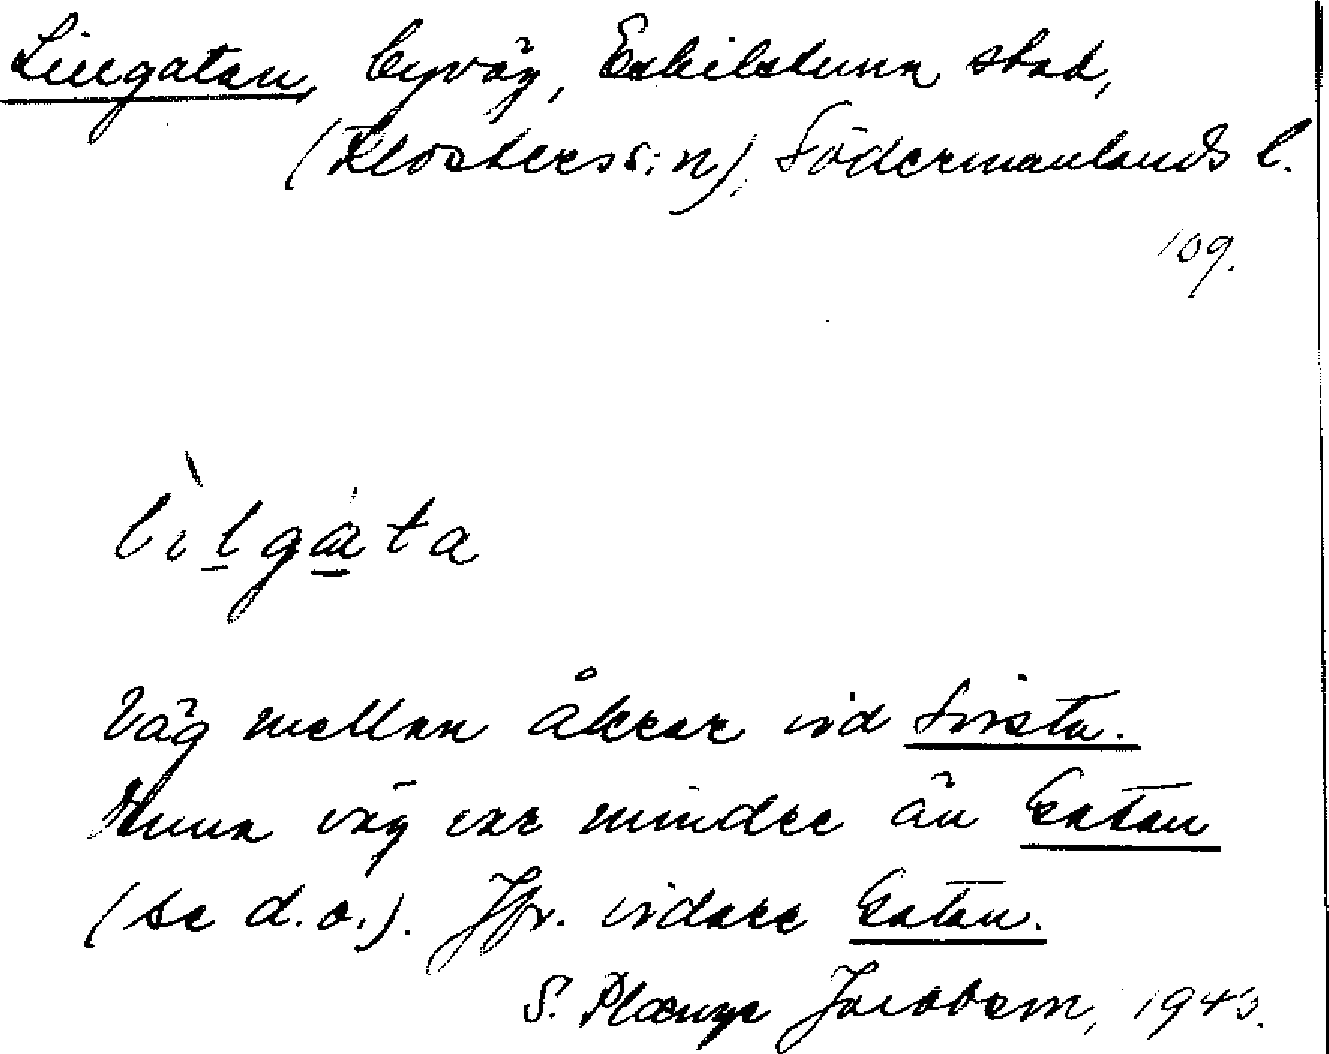 Lillgatan, byväg, Eskilstuna stad,
(Klosters s:n), Södermanlands l.
109.
lìlgàta
Väg mellan åkrar vid Sivsta.
Denna väg var mindre än Gatan
(se d.o.). Jfr. vidare Gatan.
S. Plænge Jacobson, 1943.